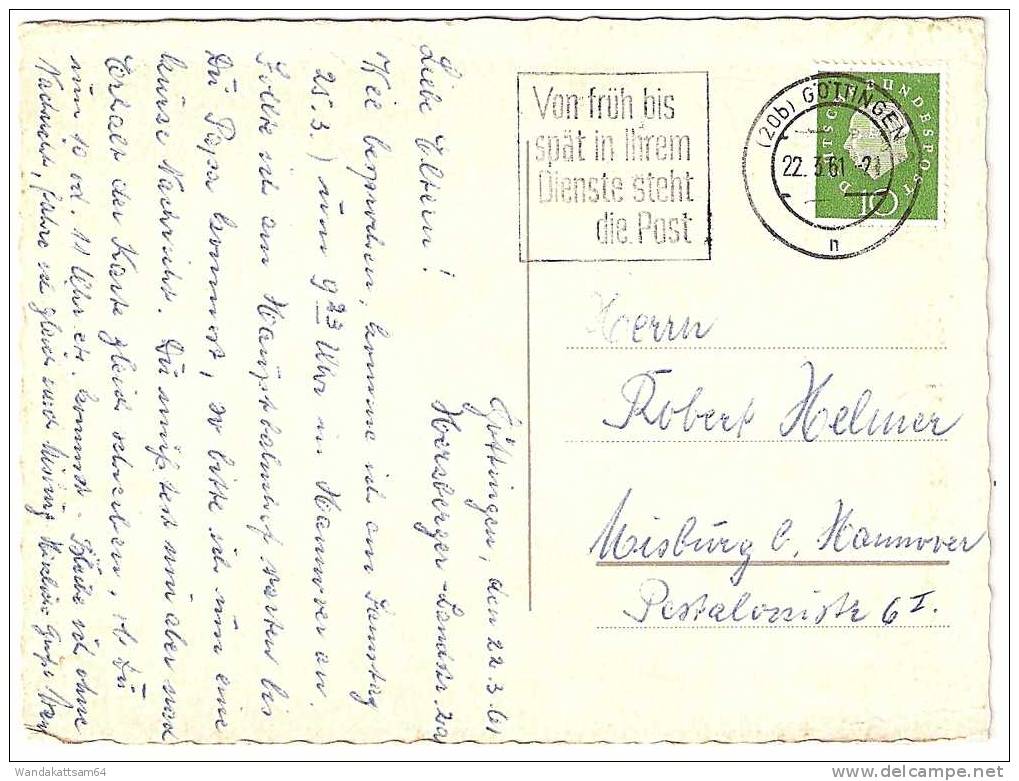 Göttingen, den 22.3.61
Herzberger-Landstr.
Liebe Eltern!
Wie besprochen, komme ich am Samstag
25.3.) um 9 23 Uhr in Hannover an.
Sollte ich am Hauptbahnhof warten bis
Du Papa kommst, so bitte ich um eine
kurze Nachricht. Du müßtest mir aber nach
Erhalt der Karte gleich schreiben, ob Du
um 10 od. 11 Uhr etc. kommst. Bleibe ich ohne
Nachricht, fahre ich gleich nach Misburg. Gruß
Von früh bis
spät in Ihrem
Dienste steht
die Post
(20b) GÖTTINGEN
22. 3.61 -21
n
DEUTSCHE BUNDESPOST
10
Herrn
Robert Helmer
Misburg b. Hannover
Pestalozzistr. 6 I.
Wandakattsam64